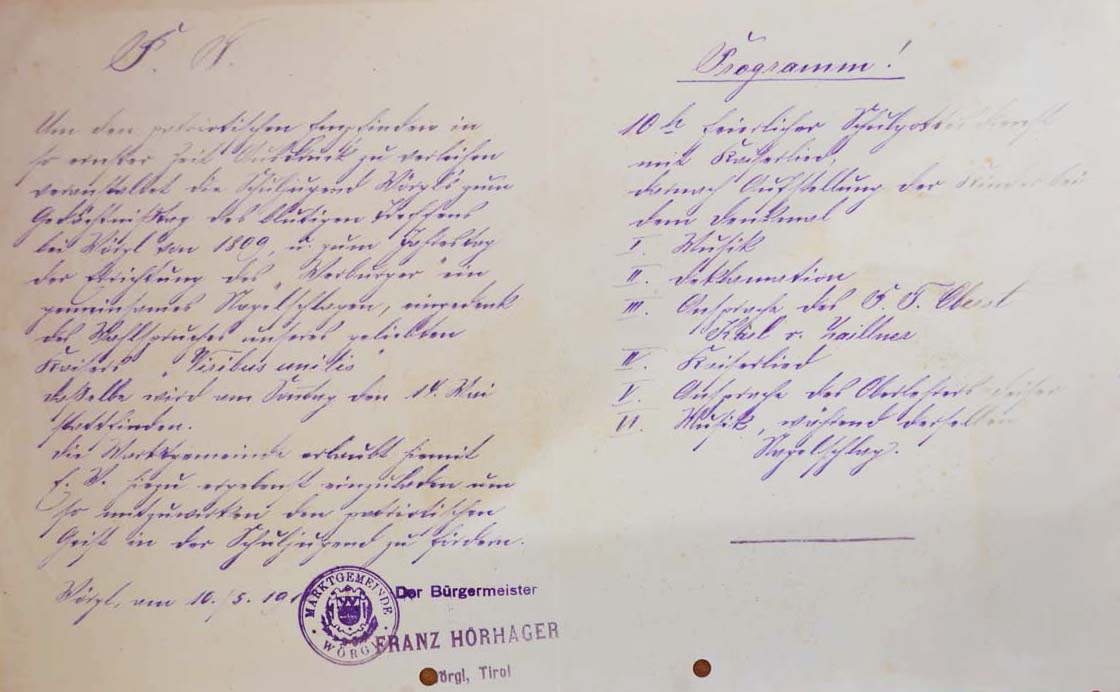 P. T.
Um den patriotischen Empfinden in
so ernster Zeit Ausdruck zu verleihen
veranstaltet die Schuljugend Wörgls zum
Gedächtnistag des blutigen Treffens
bei Wörgl von 1809, u. zum Jahrestag
der Errichtung des "Werburger" ein
gemeinsames Nagelschlagen, eingedenk
des Wahlspruches unseres geliebten
Kaisers "Viribus unitis"
dasselbe wird am Sonntag den 14. Mai
stattfinden.
Die Marktgemeinde erlaubt hiemit
hiezu ergebenst einzuladen um
so mitzuwirken den patriotischen
Geist in der Schuljugend zu fördern.
Wörgl, am 10./5. 191
MARKTGEMEINDE WÖRGL
Der Bürgermeister
FRANZ HÖRHAGER
Wörgl, Tirol
Programm!
10 h feierlicher Schulgottesdienst
mit Kaiserlied,
darnach Aufstellung der Kinder bei
dem Denkmal
I. Musik
II. Deklamation
III. Ansprache des Oberst
Karl v.
IV. Kaiserlied
V. Ansprache des Oberlehrers
VI. Musik, während derselben
Nagelschlag.